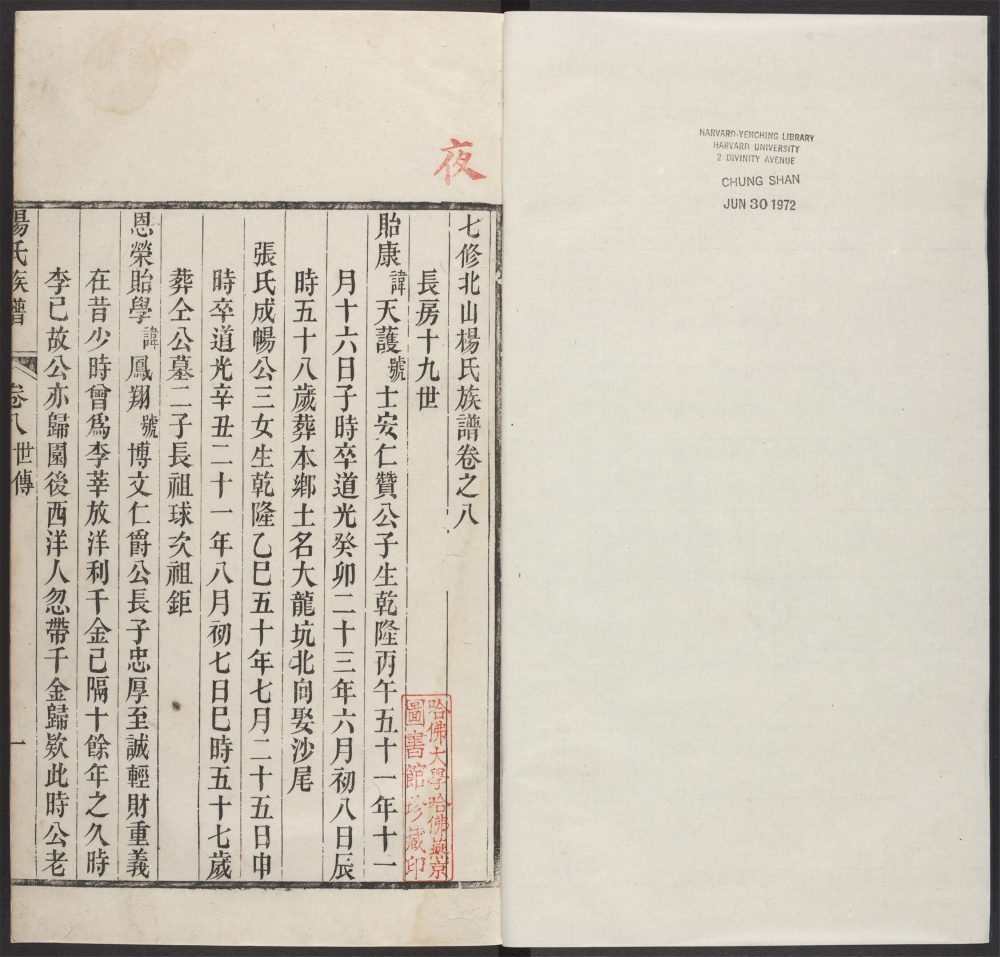 HARVARD-YENCHING LIBRARY
HARVARD UNIVERSITY
2 DIVINITY AVENUE
CHUNG SHAN
JUN 30 1972
夜
七修北山楊氏族譜卷之八
長房十九世
貽康諱天護號士安仁贊公子生乾隆丙午五十一年十一
月十六日子時卒道光癸卯二十三年六月初八日辰
時五十八歲葬本鄉土名大龍坑北向娶沙尾
張氏成暢公三女生乾隆乙巳五十年七月二十五日申
時卒道光辛丑二十一年八月初七日巳時五十七歲
葬仝公墓二子長祖球次祖鉅
恩榮貽學諱鳳翔號博文仁爵公長子忠厚至誠輕財重義
在昔少時曾爲李莘放洋利千金已隔十餘年之久時
李已故公亦歸園後西洋人忽帶千金歸欵此時公老
楊氏族譜 卷八世傳 一
哈佛大學哈佛燕京
圖書館珍藏印